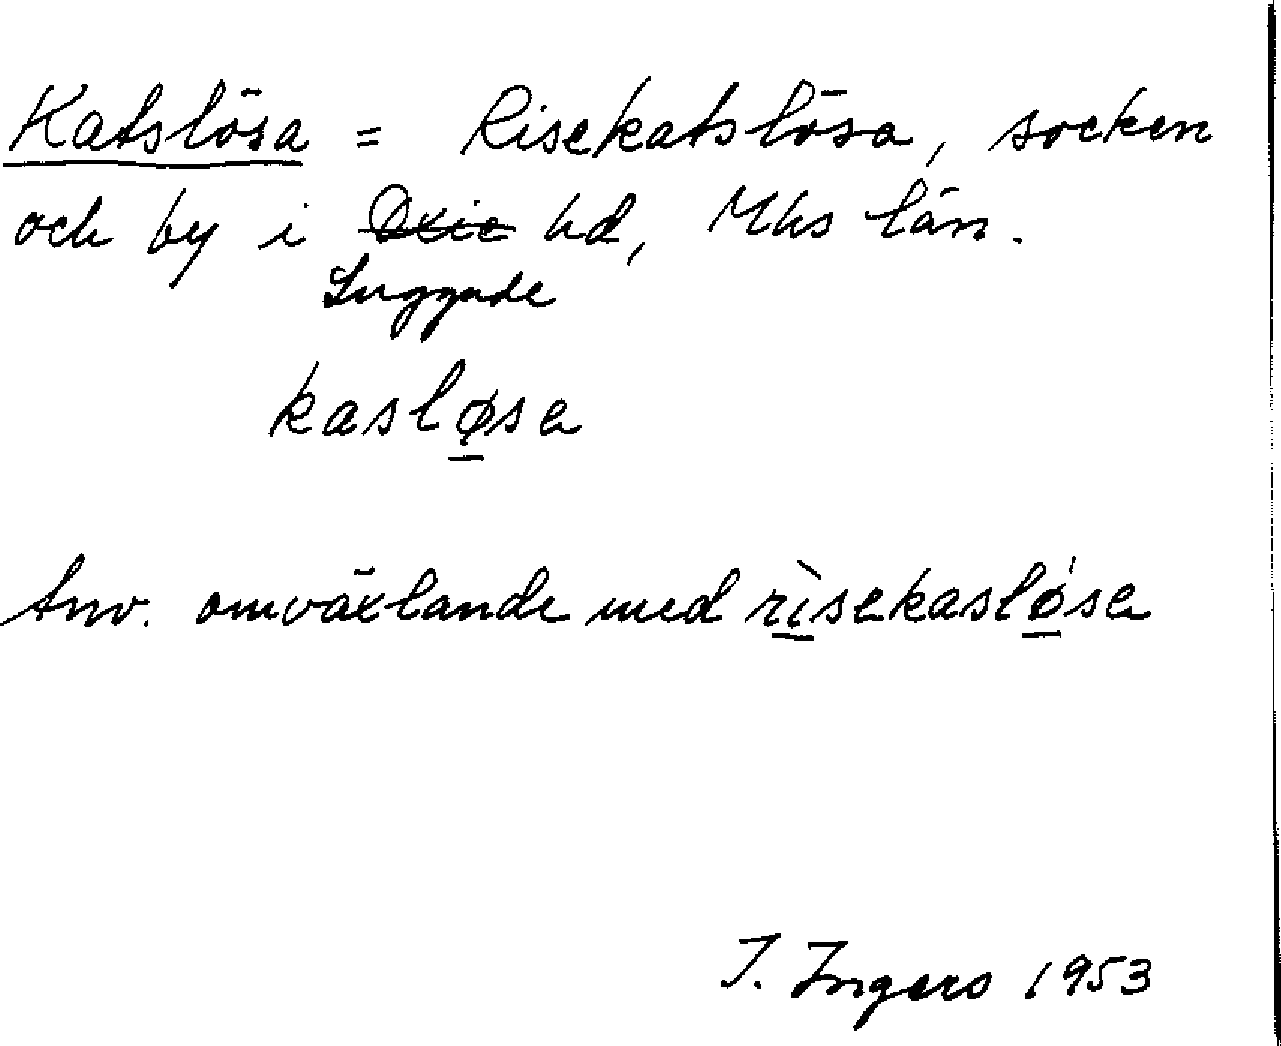 Katslösa = Risekatslösa, socken
och by i Oxie hd, Mhs län.
Luggude
kasløsa
Anv. omväxlande med rìsekasløsa
I. Ingers 1953